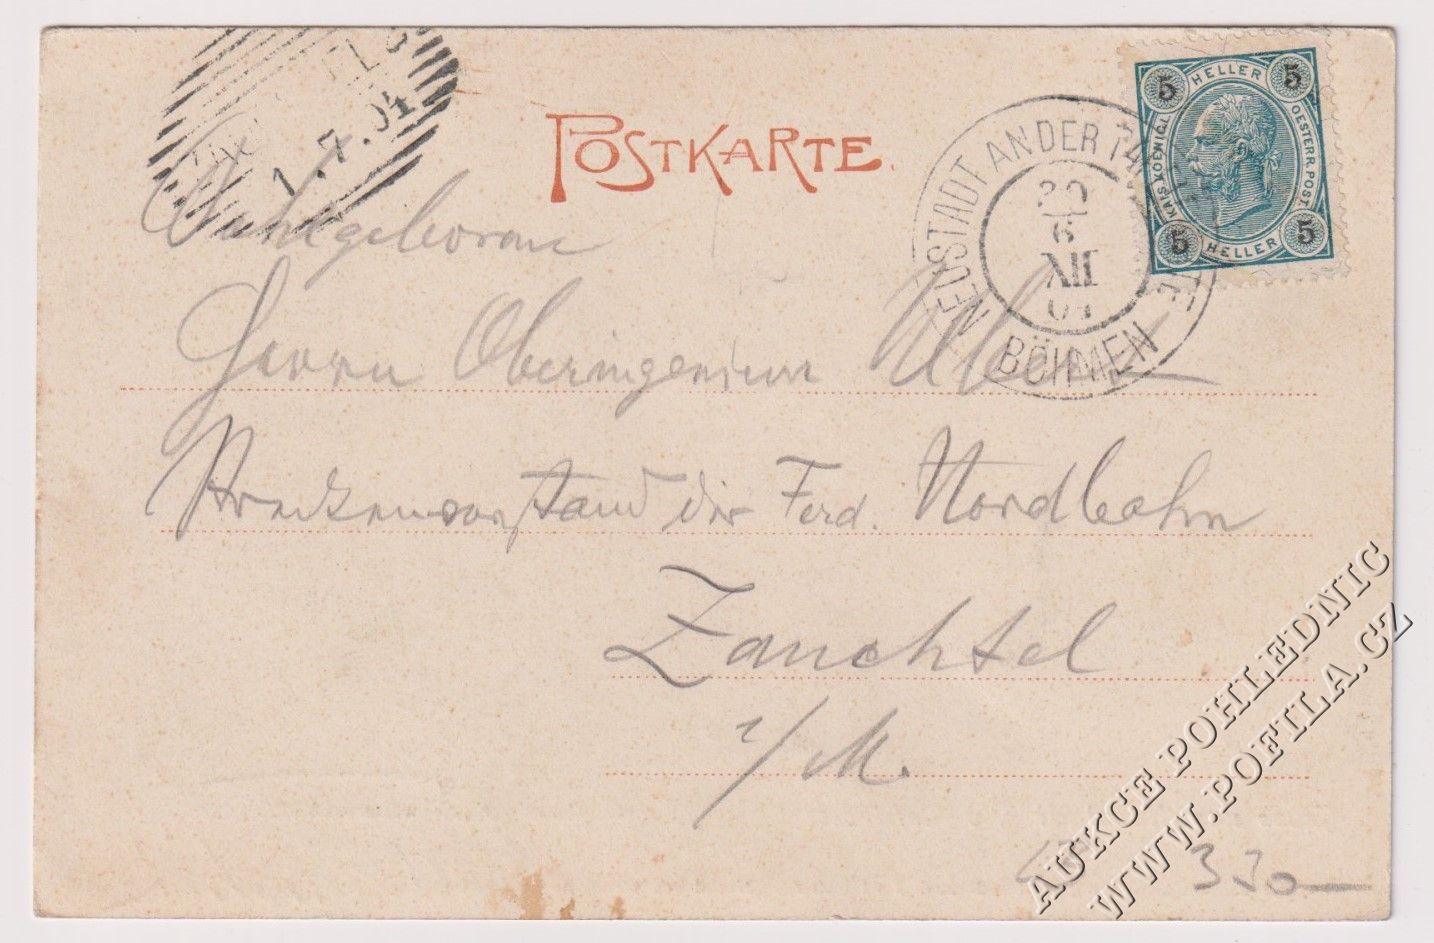 1.7.04
POSTKARTE.
5 HELLER 5
KAIS. KOENIGL. OESTERR. POST.
5 HELLER 5
NEUSTADT AN DER
30
6
XII
04
BÖHMEN
Wohlgeboren
Herrn Oberingenieur
Streckenvorstand der Ferd. Nordbahn
Zauchtel
i/M.
330
AUKCE POHLEDNIC
WWW.POFILA.CZ